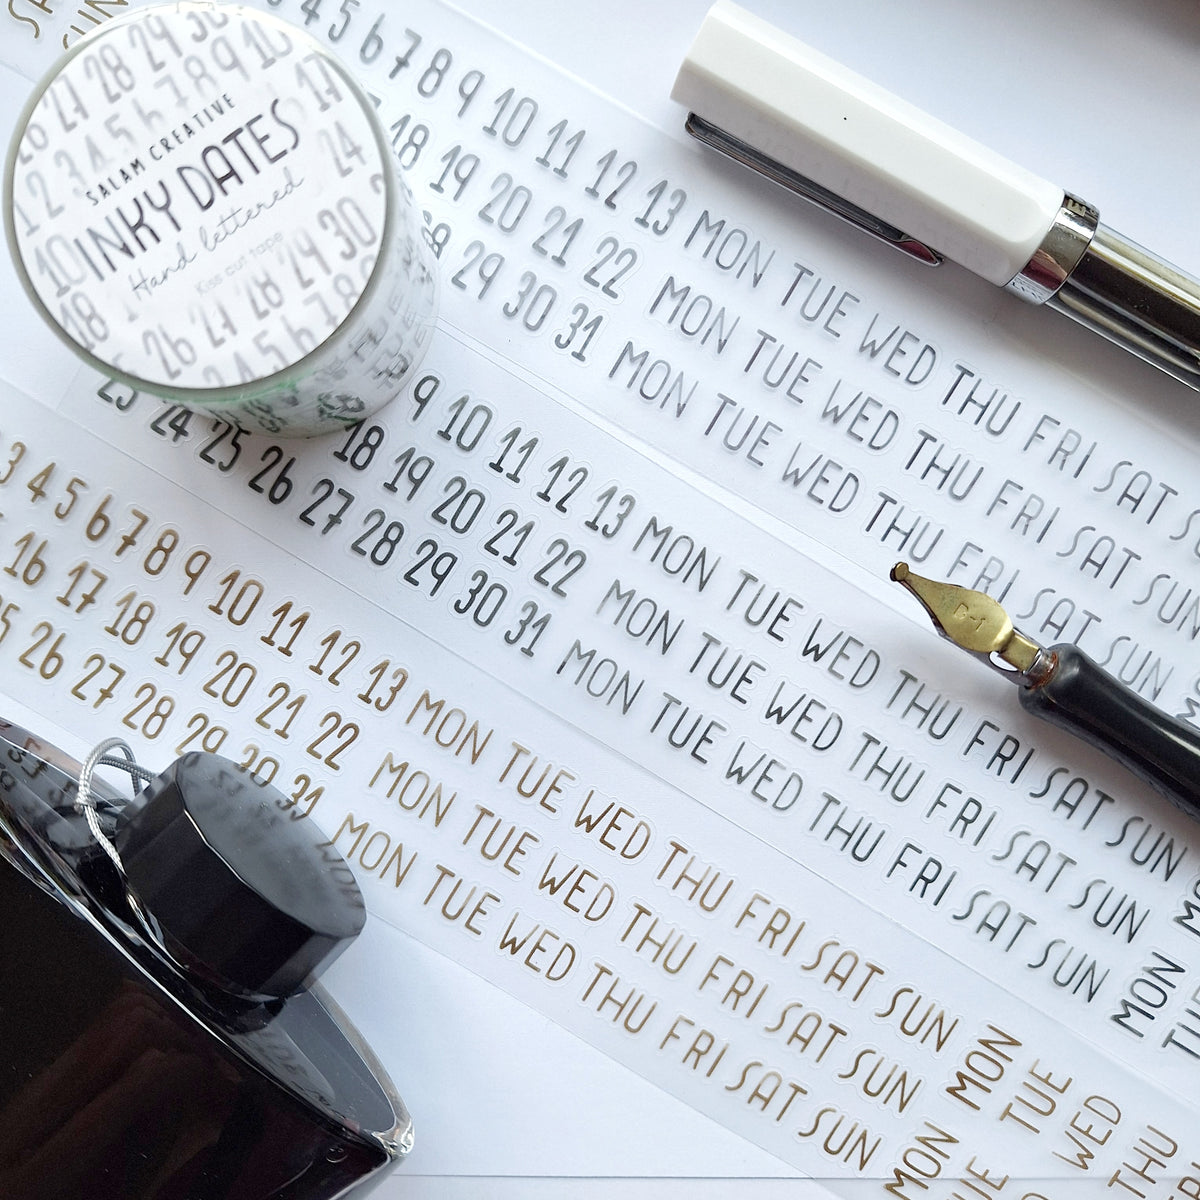 SALAM CREATIVE
INKY DATES
Hand lettered
Kiss cut tape
4 5 6 7 8 9 10 11 12 13 MON TUE WED THU FRI SAT
18 19 20 21 22 MON TUE WED THU FRI SAT SUN
28 29 30 31 MON TUE WED THU FRI SAT SUN
9 10 11 12 13 MON TUE WED THU FRI SAT SUN
18 19 20 21 22 MON TUE WED THU FRI SAT SUN
23 24 25 26 27 28 29 30 31 MON TUE WED THU FRI SAT SUN
MON
3 4 5 6 7 8 9 10 11 12 13 MON TUE WED THU FRI SAT SUN
16 17 18 19 20 21 22 MON TUE WED THU FRI SAT SUN
25 26 27 28 29 30 31 MON TUE WED THU FRI SAT SUN
MON
TUE
WED
THU
MON